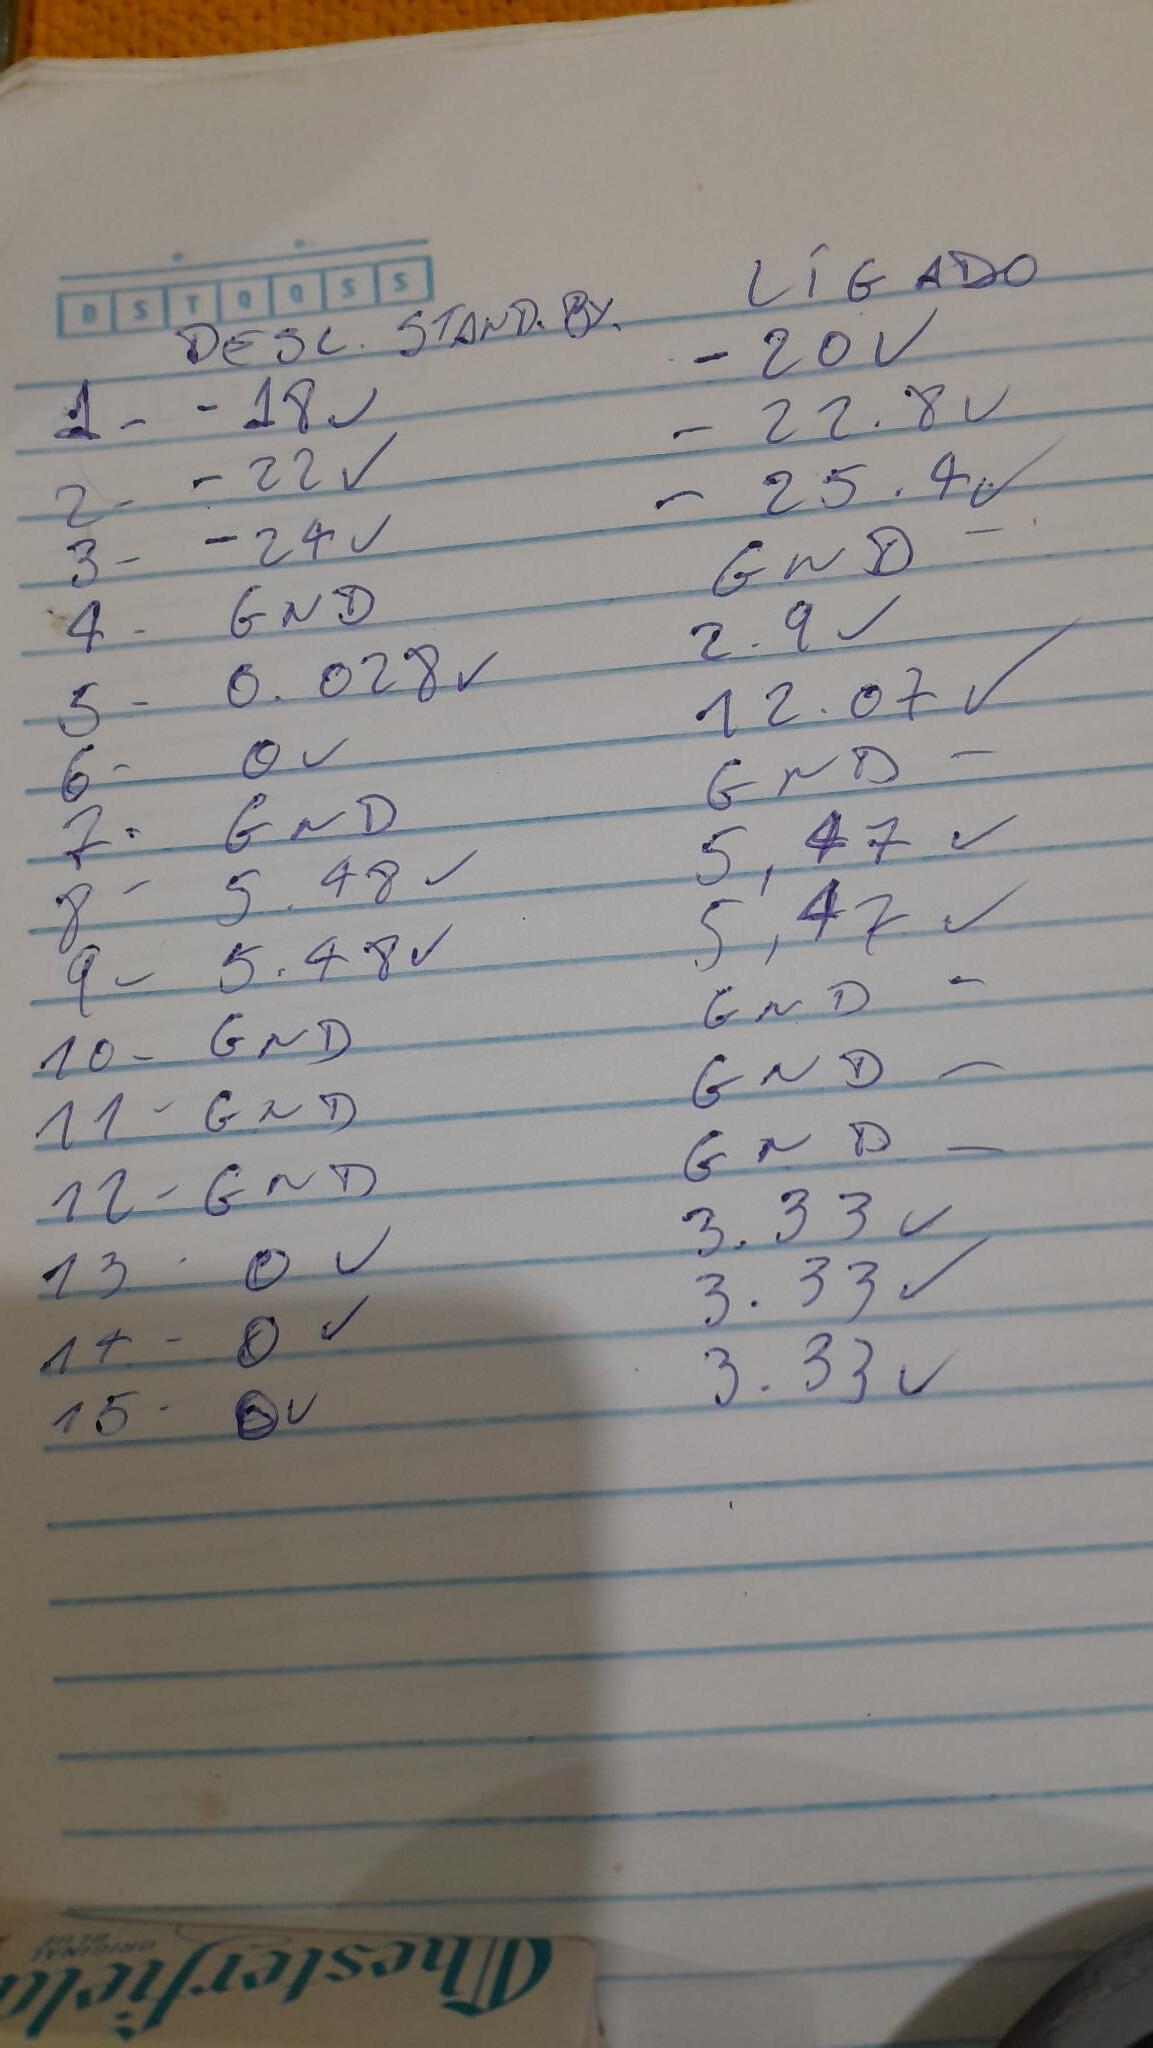 D S T Q Q S S
DESL. STAND. BY. LIGADO
1- -18V -20V
2- -22V -22.8V
3- -24V -25.4V
4- GND GND -
5- 0.028V 2.9V
6- 0V 12.07V
7- GND GND -
8- 5.48V 5,47V
9- 5.48V 5,47V
10- GND GND -
11- GND GND -
12- GND GND -
13- 0V 3.33V
14- 0V 3.33V
15- 0V 3.33V
Chesterfield
ORIGINAL